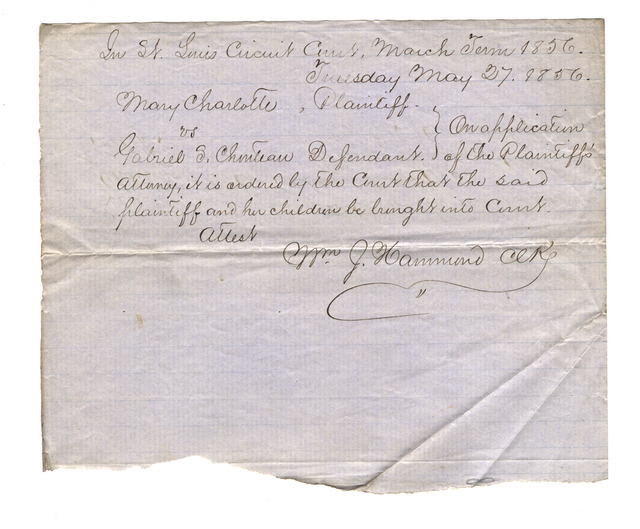 In St. Louis Circuit Court, March Term 1856.
Tuesday May 27. 1856.
Mary Charlotte , Plaintiff.
vs } On application
Gabriel S. Chouteau Defendant. of the Plaintiff's
attorney, it is ordered by the Court that the said
plaintiff and her children be brought into Court.
Attest
Wm J. Hammond Clk